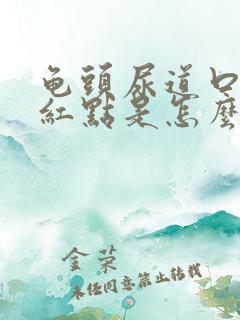 龟頭尿道口
紅點是怎麼
金荣
未经同意禁止转载